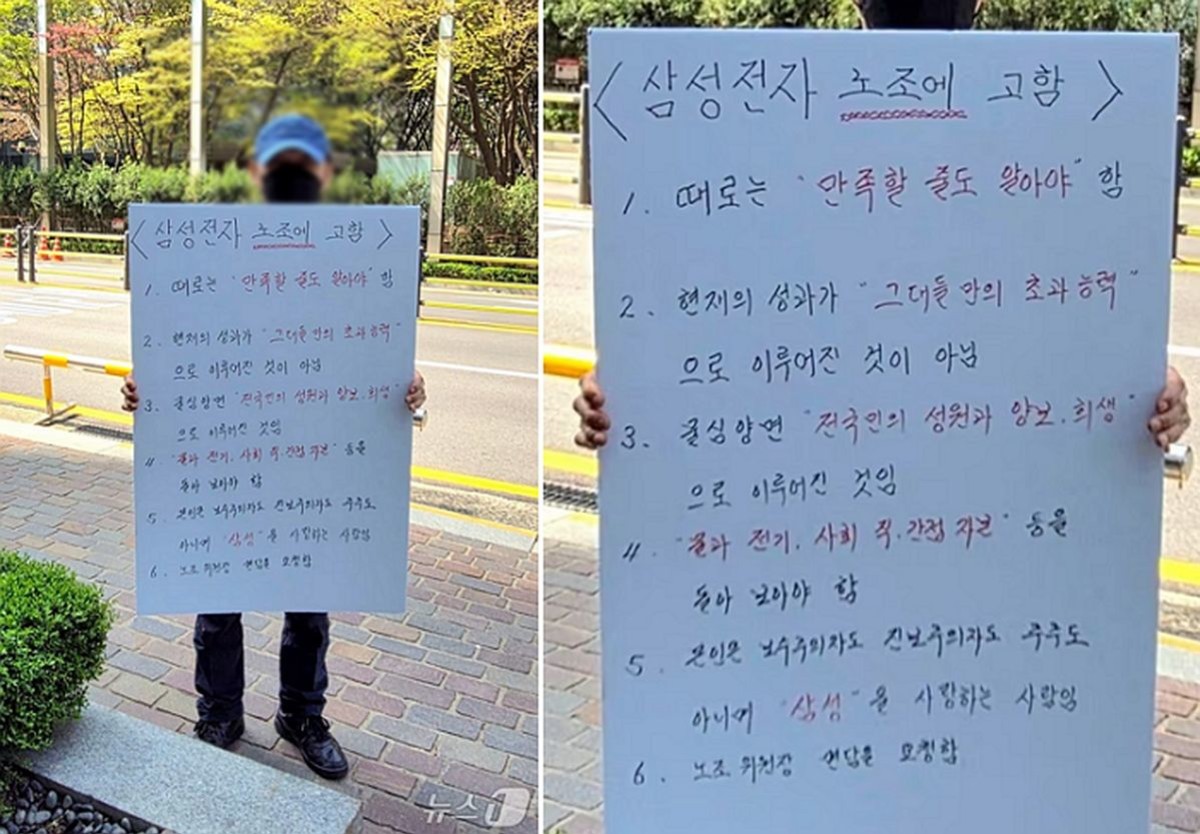 < 삼성전자 노조에 고함 >
1. 때로는 "만족할 줄도 알아야" 함
2. 현재의 성과가 "그대들만의 초과능력"
으로 이루어진 것이 아님
3. 물심양면 "전국민의 성원과 양보.희생"
으로 이루어진 것임
4. "물과 전기. 사회 직.간접 자본" 등을
돌아 보아야 함
5. 본인은 보수주의자도 진보주의자도 주주도
아니며 "삼성"을 사랑하는 사람임
6. 노조 위원장 면담을 요청함
뉴스1
< 삼성전자 노조에 고함 >
1. 때로는 "만족할 줄도 알아야" 함
2. 현재의 성과가 "그대들만의 초과능력"
으로 이루어진 것이 아님
3. 물심양면 "전국민의 성원과 양보.희생"
으로 이루어진 것임
4. "물과 전기. 사회 직.간접 자본" 등을
돌아 보아야 함
5. 본인은 보수주의자도 진보주의자도 주주도
아니며 "삼성"을 사랑하는 사람임
6. 노조 위원장 면담을 요청함